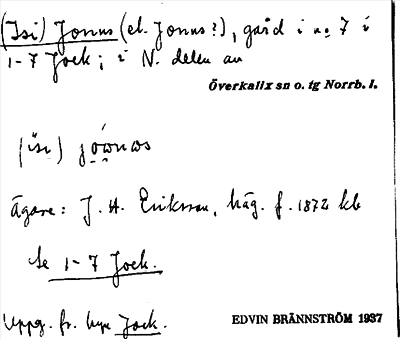 (Isi) Jonus (el. Jonus?), gård i no 7 i
1-7 Jock; i N. delen av
Överkalix sn o. tg Norrb. l.
(isi)
Ägare: J. A. Eriksson, häg. f. 1872 kb
Se 1-7 Jock.
Uppg. fr. byn Jock.
EDVIN BRÄNNSTRÖM 1937